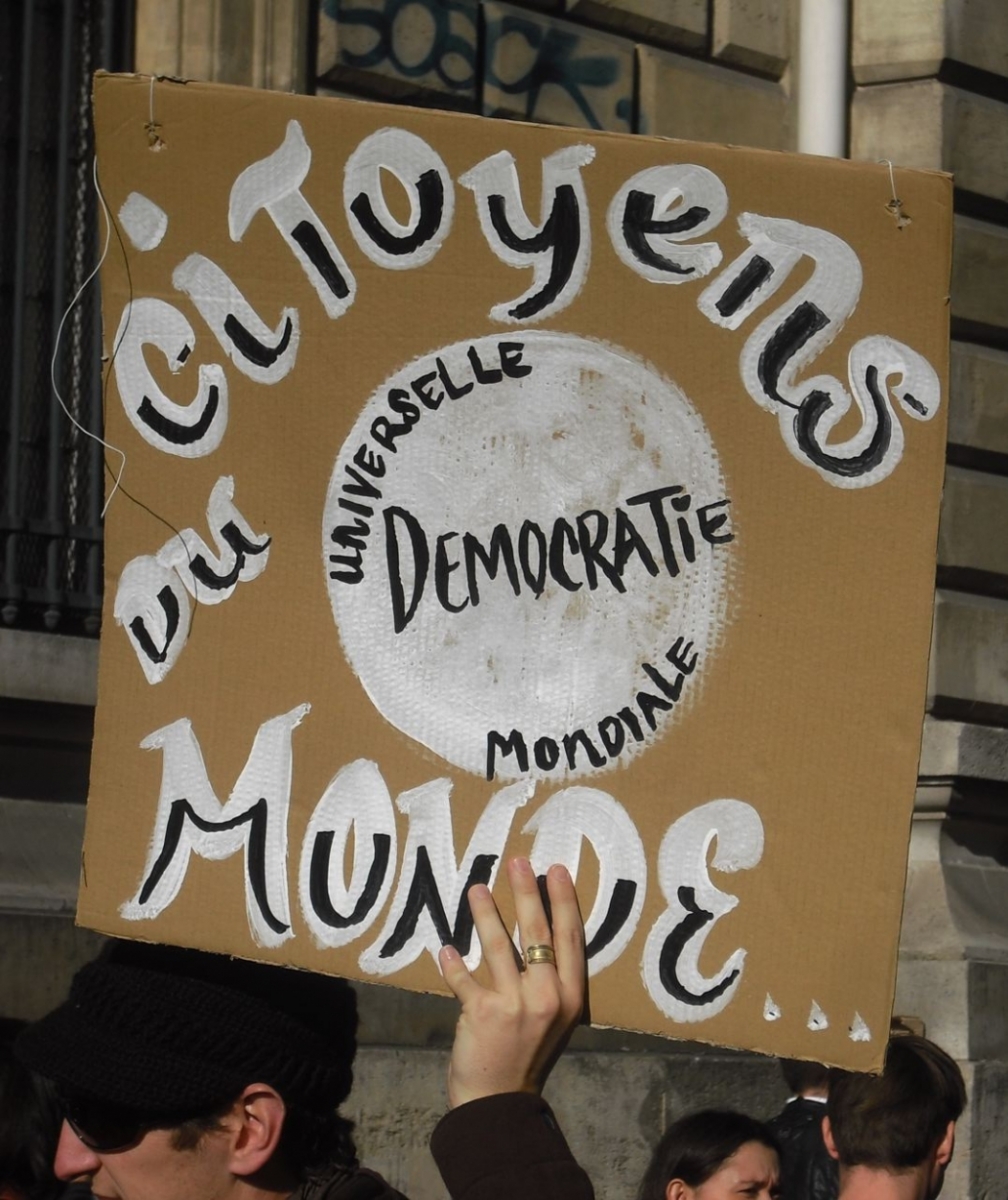 CiToyens
DU
MONDE...
UNIVERSELLE
DEMOCRATiE
MONDIALE